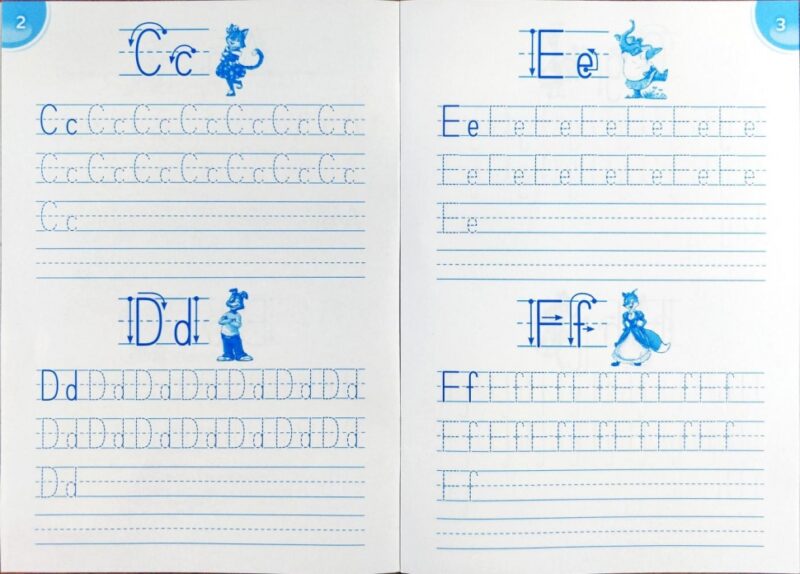 2
Cc
Cc Cc Cc Cc Cc Cc Cc
Cc Cc Cc Cc Cc Cc Cc
Cc
Dd
Dd Dd Dd Dd Dd Dd Dd
Dd Dd Dd Dd Dd Dd Dd
Dd
3
Ee
Ee Ee Ee Ee Ee Ee Ee
Ee Ee Ee Ee Ee Ee Ee
Ee
Ff
Ff Ff Ff Ff Ff Ff Ff
Ff Ff Ff Ff Ff Ff Ff
Ff